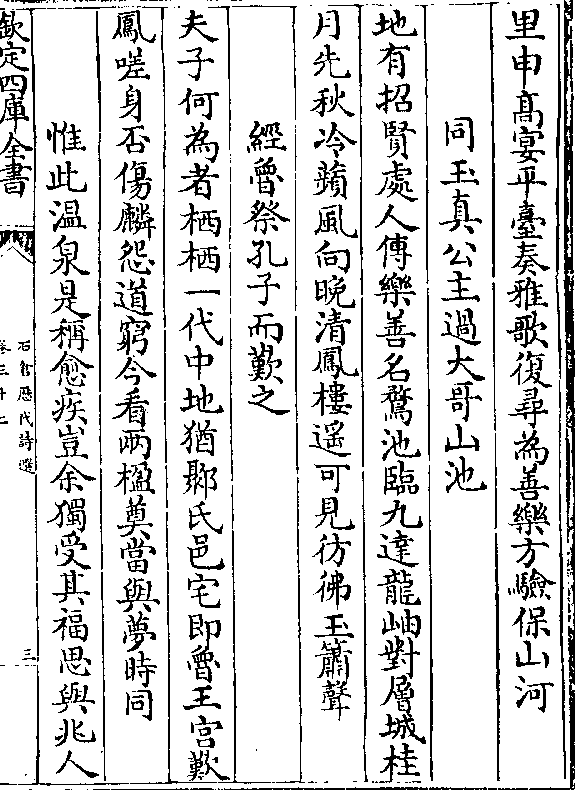 里申髙宴平臺奏雅歌復尋為善樂方驗保山河
同玉真公主過大哥山池
地有招賢處人傳樂善名鶩池臨九達龍岫對層城桂
月先秋冷蘋風向晚清鳳樓遥可見彷彿玉簫聲
經魯祭孔子而歎之
夫子何為者栖栖一代中地猶鄹氏邑宅即魯王宫歎
鳳嗟身否傷麟怨道窮今看兩楹奠當與夢時同
惟此温泉是稱愈疾豈余獨受其福思與兆人
欽定四庫全書
石倉歷代詩選
卷三十二
三